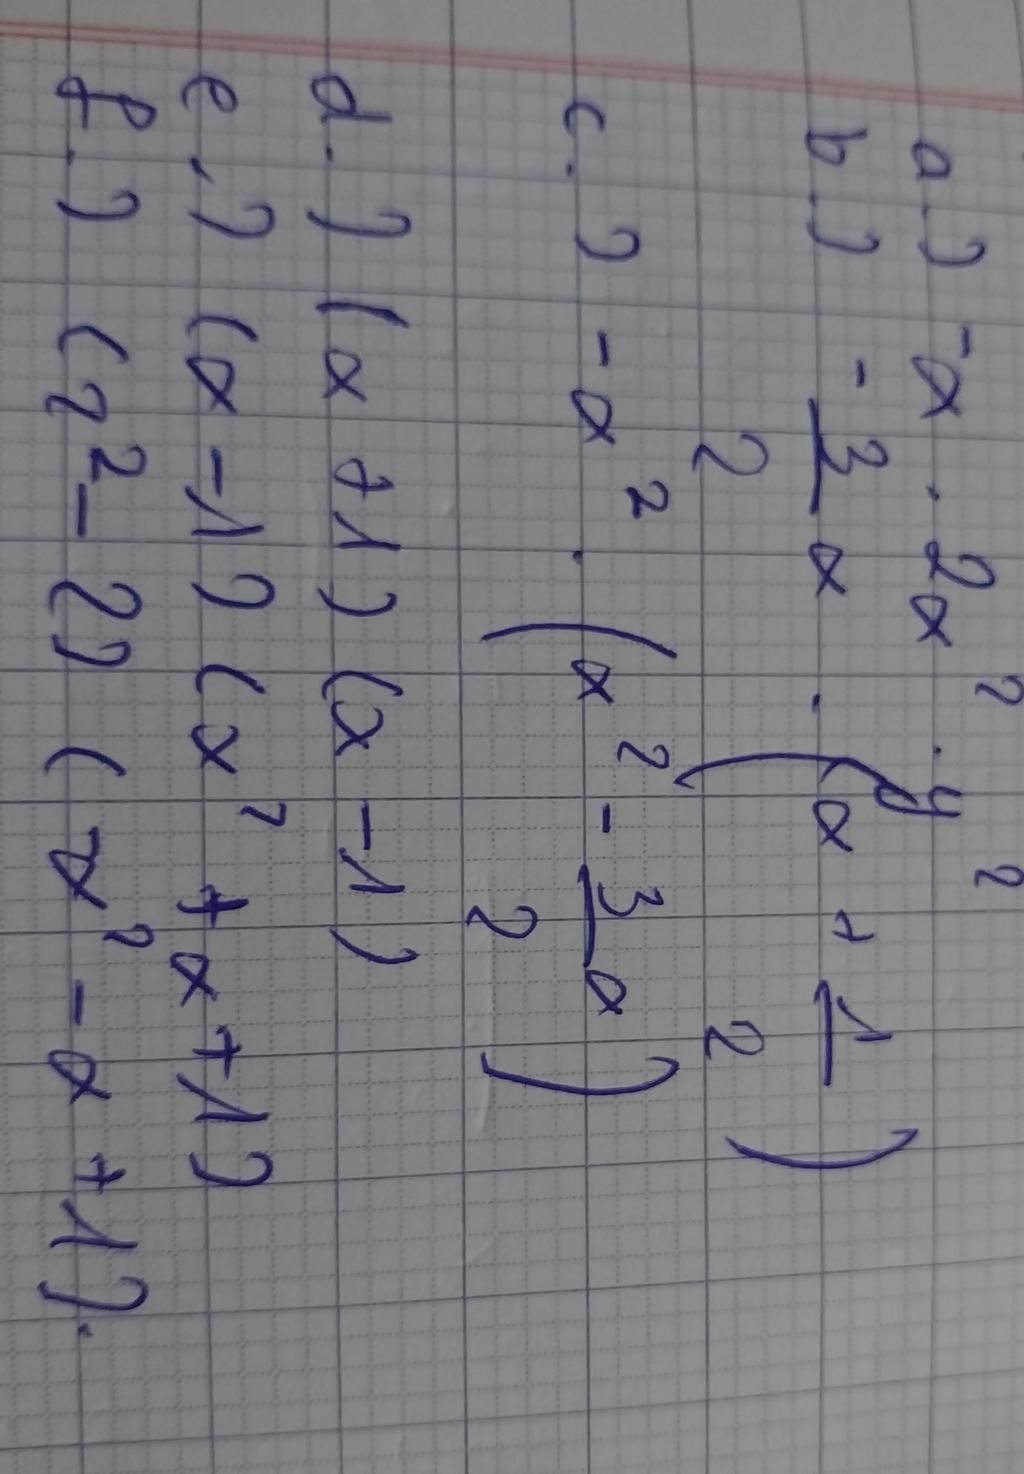 a.) -x . 2x² . y²
b.) -3/2 x . (x + 1/2)
c.) -x² . (x² - 3/2 x)
d.) (x + 1) (x - 1)
e.) (x - 1) (x² + x + 1)
f.) (x² - 2) (x² - x + 1).